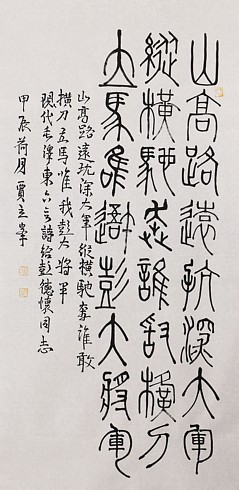 山高路遠坑深大軍
縱橫馳奔誰敢橫刀
立馬唯我彭大將軍
山高路遠坑深大軍縱橫馳奔誰敢
橫刀立馬唯我彭大將軍
現代毛澤東六言詩給彭德懷同志
甲辰荷月賈立峯